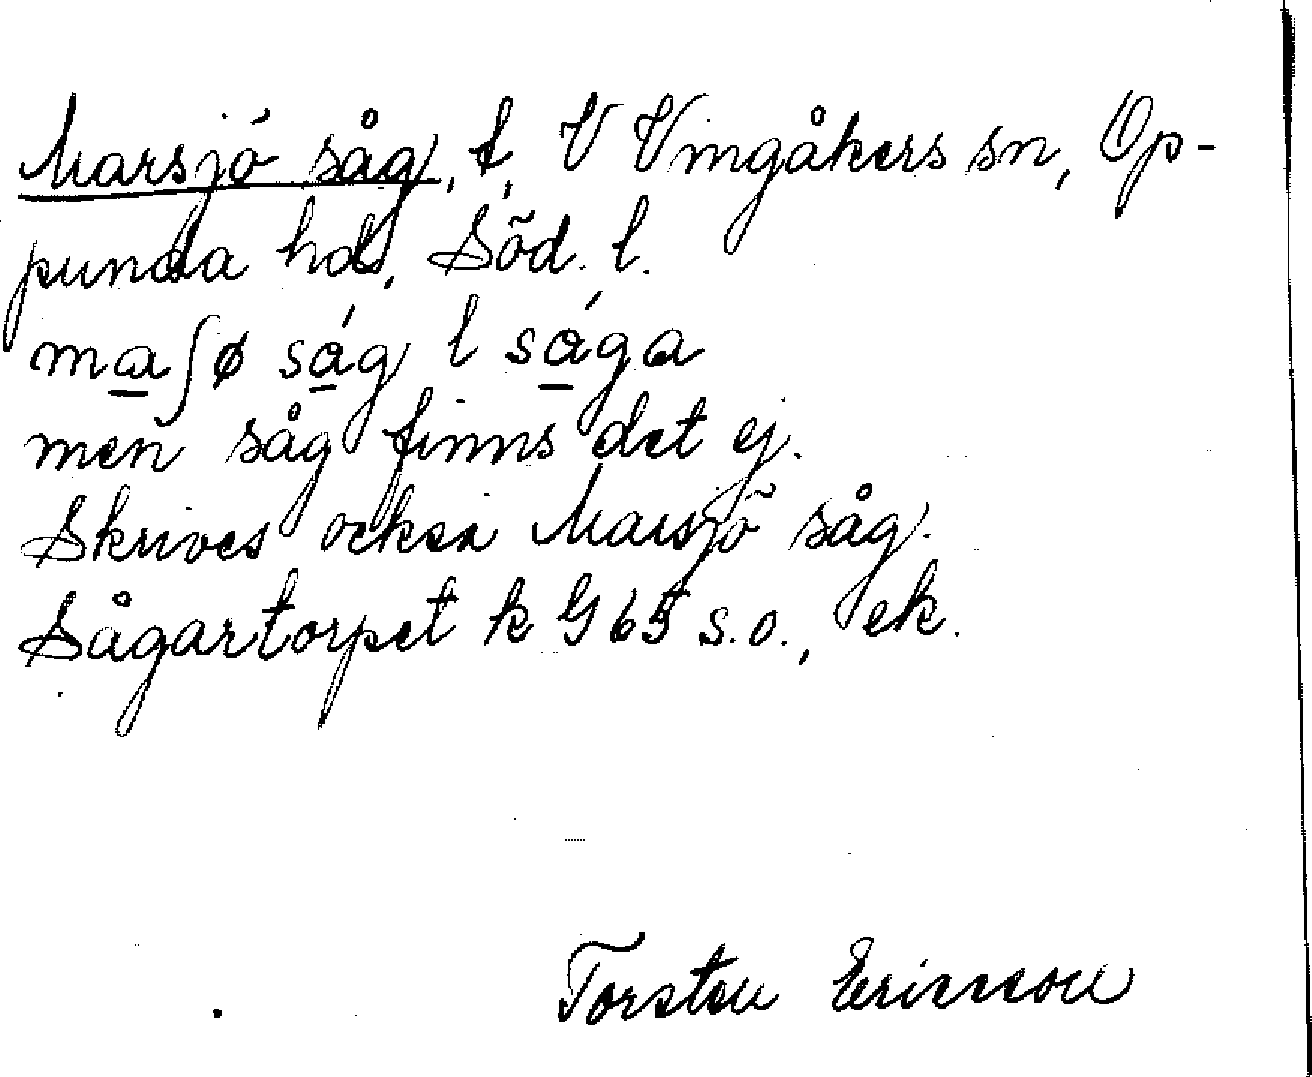 Marsjö såg, t, V Vingåkers sn, Op-
punda hd, Söd. l.
maʃø ság l sága
men såg finns det ej.
Skrives också Marsjö såg.
Sågartorpet k G 65 s.o., ek.
Torsten Ericsson